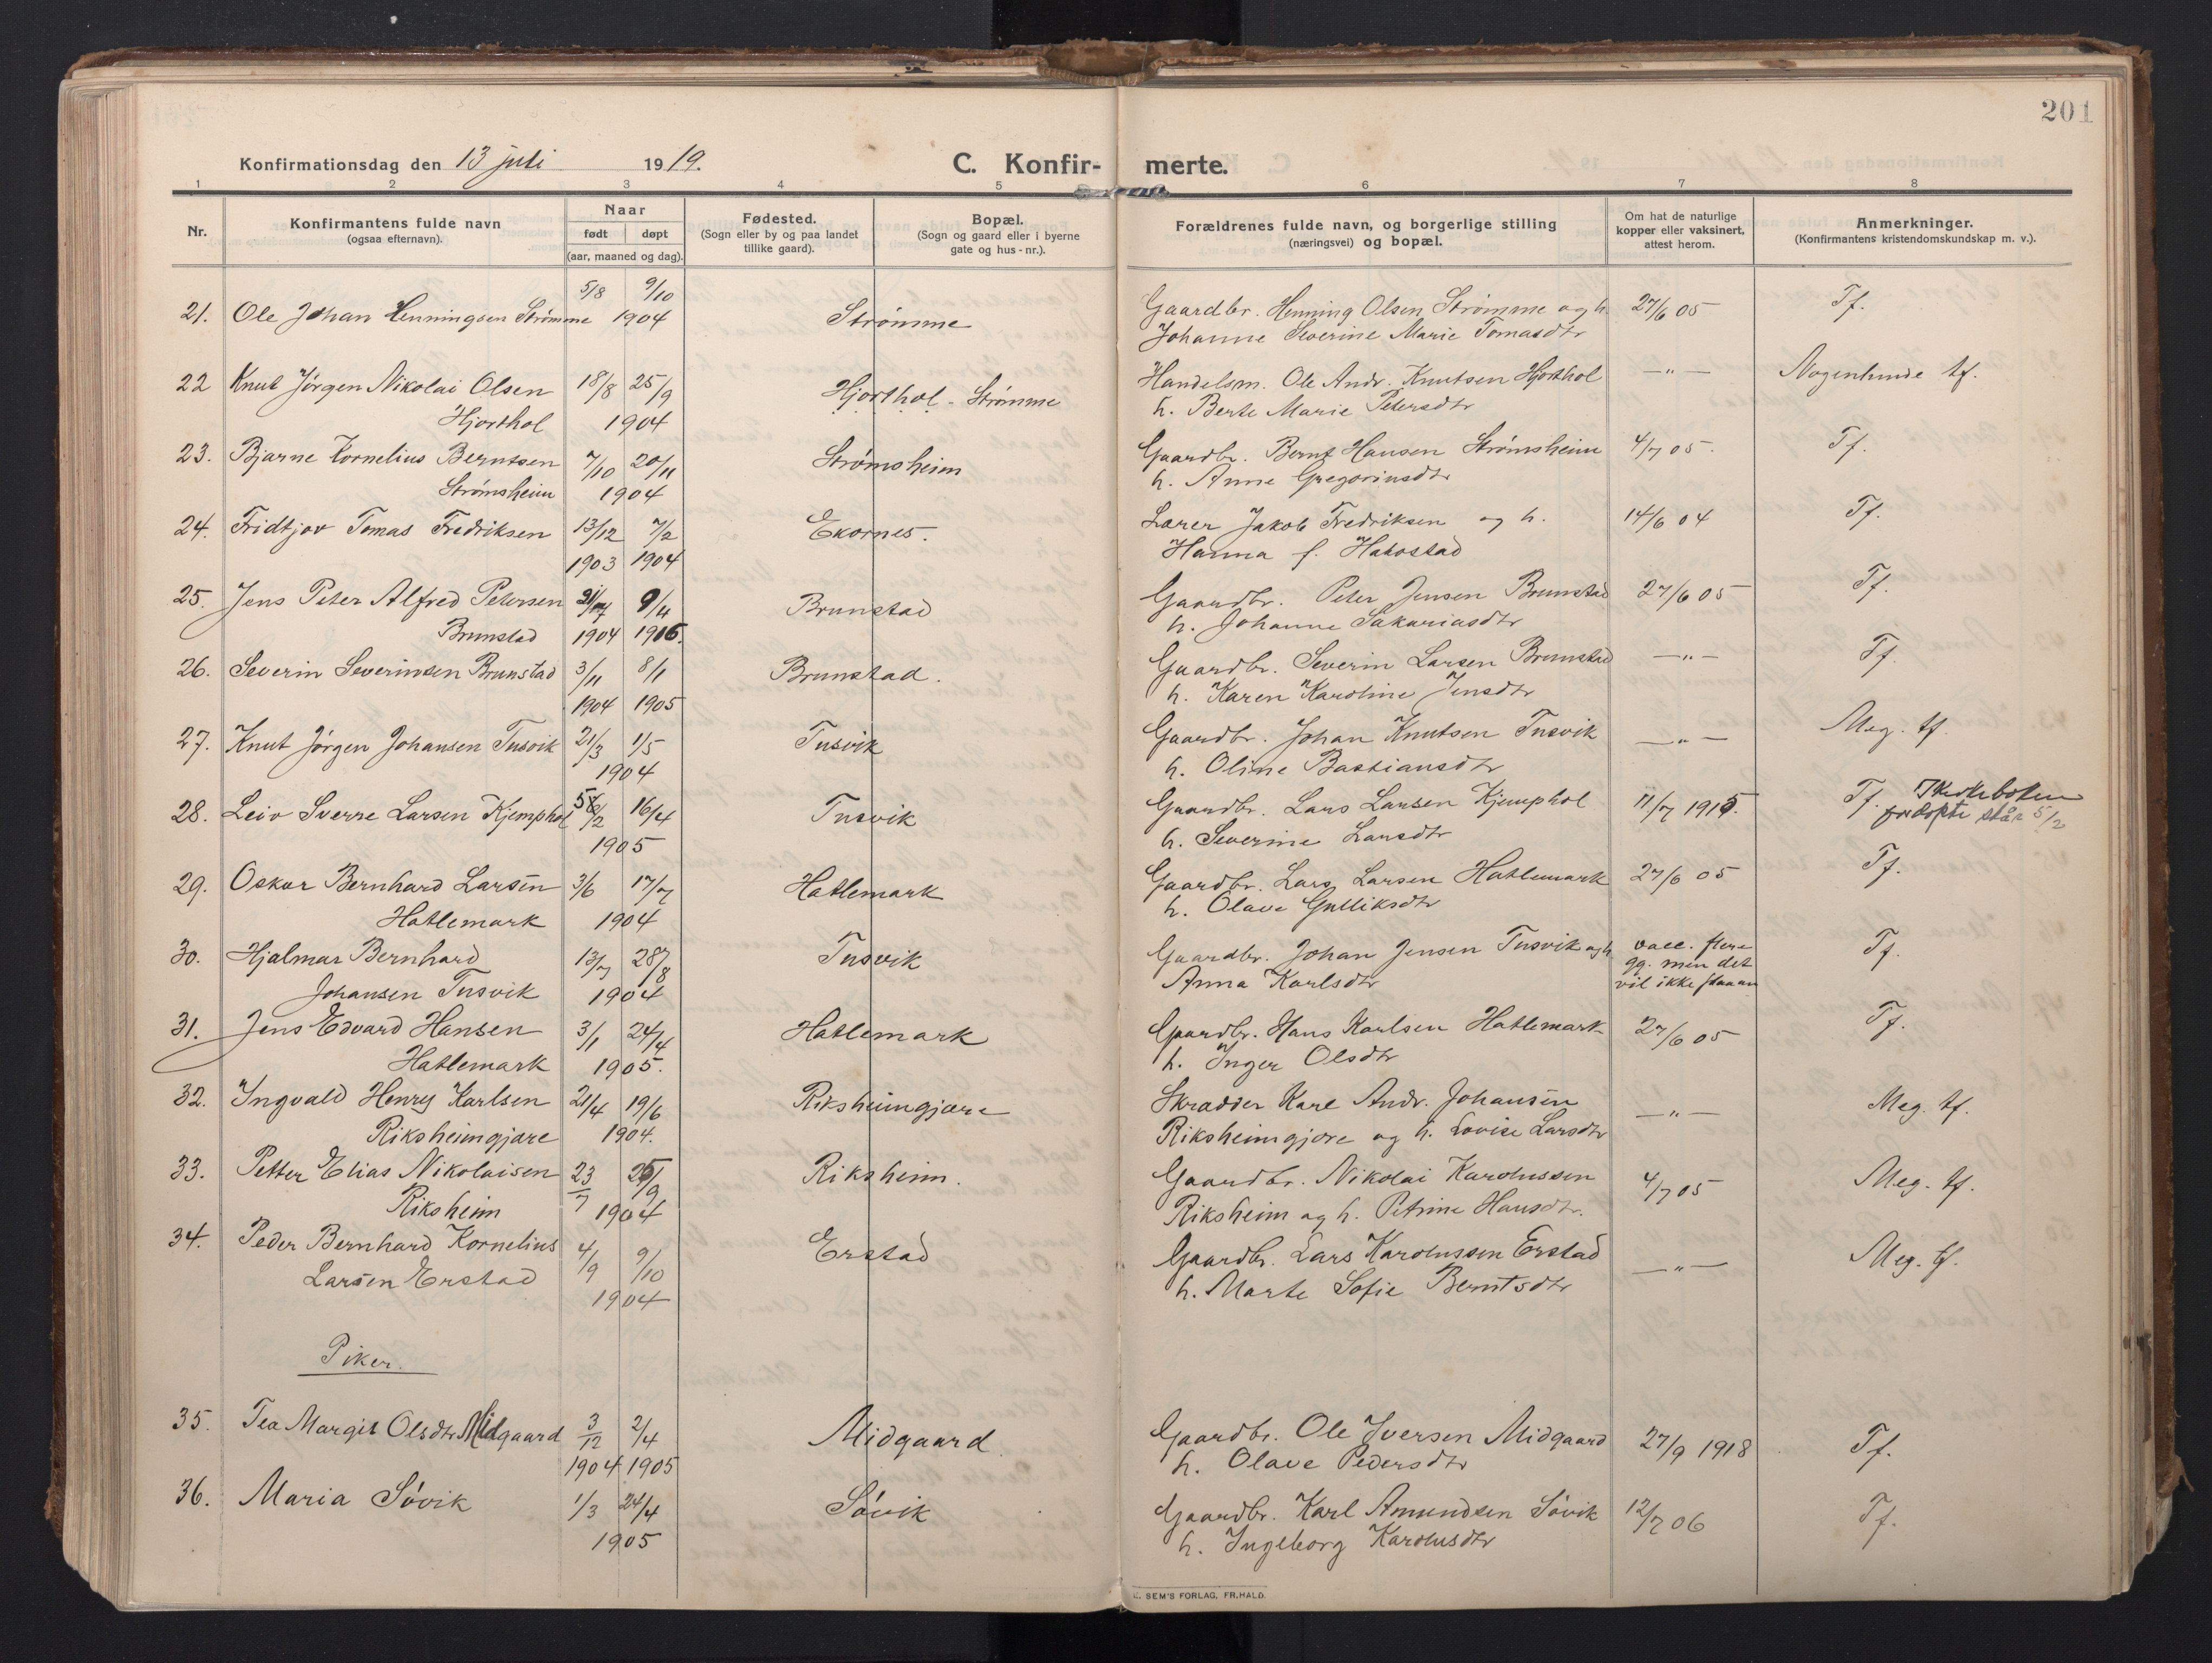 201
Konfirmationsdag den 13 juli 1919. C. Konfir- merte.
1 2 3 4 5 6 7 8
Nr. Konfirmantens fulde navn (ogsaa efternavn). Naar født døpt (aar, maaned og dag). Fødested. (Sogn eller by og paa landet tillike gaard). Bopæl. (Sogn og gaard eller i byerne gate og hus-nr.). Forældrenes fulde navn, og borgerlige stilling (næringsvei) og bopæl. Om hat de naturlige kopper eller vaksinert, attest herom. Anmerkninger. (Konfirmantens kristendomskundskap m. v.).
5/8 9/10
21. Ole Johan Henningsen Strømme 1904 Strømme Gaardbr. Henning Olsen Strømme og h. 27/6 05 Tf.
Johanne Severine Marie Tomasdtr
22 Knut Jørgen Nikolai Olsen 18/8 25/9 Hjorthol - Strømme Handelsm. Ole Andr. Knutsen Hjorthol —"— Nogenlunde tf.
Hjorthol 1904 h. Berte Marie Petersdtr
23. Bjarne Kornelius Berntsen 7/10 20/11 Strømsheim Gaardbr. Bernt Hansen Strømsheim 4/7 05. Tf.
Strømsheim 1904 h. Anne Gregoriusdtr
24. Fridtjov Tomas Fredriksen 13/12 7/2 Ekornes. Lærer Jakob Fredriksen og h. 14/6 04 Tf.
1903 1904 Hanna f.
25. Jens Peter Alfred Petersen 9/4 Brunstad Gaardbr. Peter Jensen Brunstad 27/6 05 Tf.
Brunstad 1904 h. Johanne Sakariasdtr
26. Severin Severinsen Brunstad 3/11 8/1 Brunstad. Gaardbr. Severin Larsen Brunstad —"— Tf.
1904 1905 h. Karen Karoline Jensdtr
27. Knut Jørgen Johansen Tusvik 21/3 1/5 Tusvik Gaardbr. Johan Knutsen Tusvik —"— Meg. tf.
1904 h. Oline Bastiansdtr
28. Leiv Sverre Larsen Kjemphol 16/4 Tusvik Gaardbr. Lars Larsen Kjemphol 11/7 1915. Tf. I Kirkeboken
1905 h. Severine Larsdtr for døpte står 5/2
29. Oskar Bernhard Larsen 3/6 17/7 Hatlemark Gaardbr. Lars Larsen Hatlemark 27/6 05 Tf.
Hatlemark 1904 h. Olave Gulliksdtr
30. Hjalmar Bernhard 13/7 28/8 Tusvik Gaardbr. Johan Jensen Tusvik og h. vacc. flere Tf.
gg. men det
Johansen Tusvik 1904 Anna Karlsdtr vil ikke slaa an
31. Jens Edvard Hansen 3/1 24/4 Hatlemark Gaardbr. Hans Karlsen Hatlemark 27/6 05 Tf.
Hatlemark 1905. h. Inger Olsdtr
32. Ingvald Henry Karlsen 21/4 19/6 Riksheimgjære Skrædder Karl Andr. Johansen —"— Meg. tf.
Riksheimgjære 1904. Riksheimgjære og h. Lovise Larsdtr
33. Petter Elias Nikolaisen 23/7 Riksheim. Gaardbr. Nikolai Karolussen 4/7 05 Meg. tf.
Riksheim 1904 Riksheim og h. Petrine Hansdtr.
34. Peder Bernhard Kornelius 4/9 9/10 Erstad Gaardbr. Lars Karolussen Erstad —"— Meg. tf.
Larsen Erstad 1904 h. Marte Sofie Berntsdtr
Piker.
35. Tea Margit Olsdtr Midgaard 3/12 2/4 Midgaard Gaardbr. Ole Iversen Midgaard 27/9 1918 Tf.
1904 1905 h. Olave Pedersdtr
36. Maria Søvik 1/3 24/4 Søvik Gaardbr. Karl Amundsen Søvik 12/7 06 Tf.
1905 h. Ingeborg Karolusdtr
SEM'S FORLAG, FR.HALD.